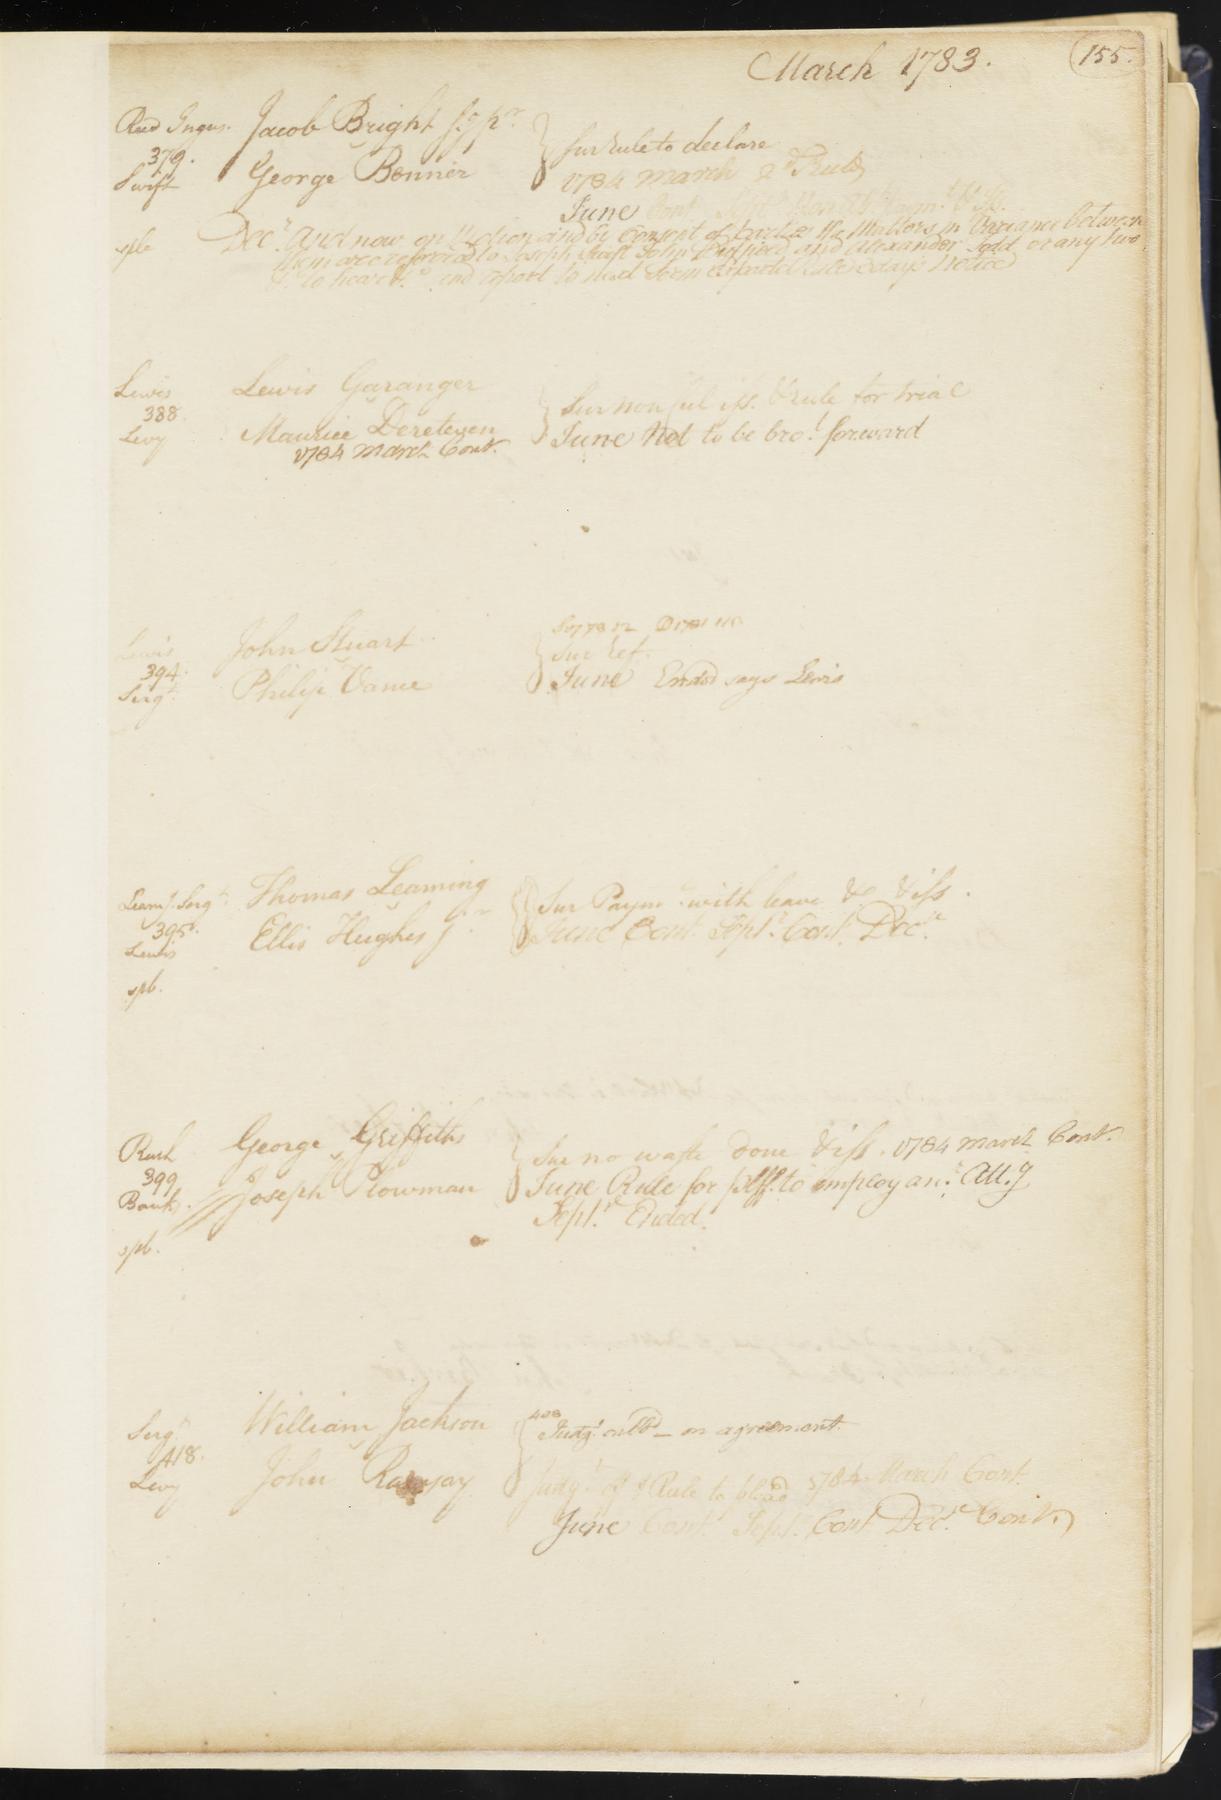 March 1783. 155.
Jacob Bright
379.
Swift George Benner
Sur Rule to declare
1784 March 2d Rule
June Cont. Sept.
spl Decr. And now on Motion and by Consent of Parties the Matters in Variance between
them are referred to Joseph John and Alexander Todd or any two
to hear &c. and report to next Term 2 days Notice
Lewis Lewis Garanger
388.
Levy Maurice
1784 March Cont.
Sur non cul iss. & rule for trial
June Not to be brot. forward
Lewis John Stuart
394.
Sergt. Philip Vance
Sur ref.
June Ended says Lewis
Leamg. Sergt. Thomas Leaming
395.
Lewis Ellis Hughes Jr.
spl.
Sur Paymt. with leave &c & iss.
June Cont. Sept. Cont. Decr.
Rush George Griffiths
399
Bank. Joseph Plowman
spl.
Sur no waste done & iss. 1784 March Cont.
June Rule for plff. to employ anr. Atty
Septr. Ended.
Sergt. William Jackson
418.
Levy John Ramsay
408
Judgt. on agreement
Judgt. Rule to plead 1784 March Cont.
June Cont. Sept. Cont. Decr. Cont.